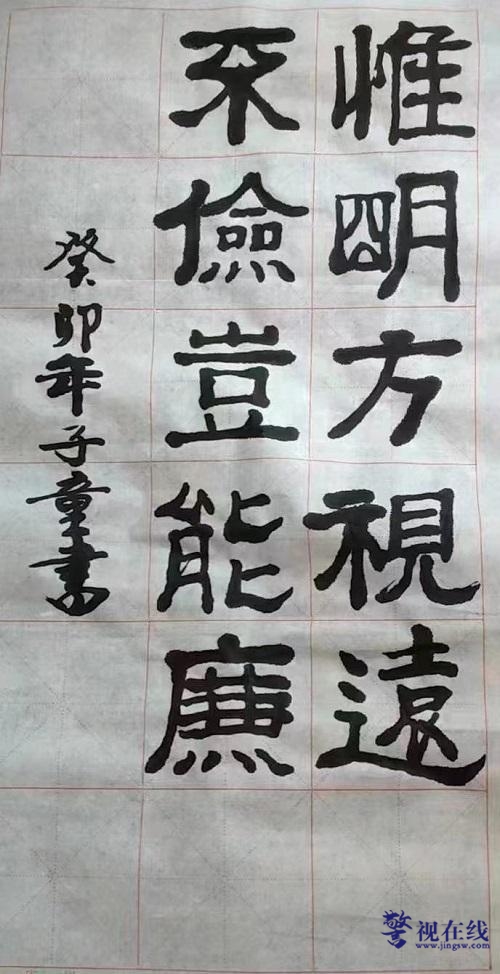 惟明方視遠
不儉豈能廉
癸卯年子童書
警视在线
www.jingsw.com